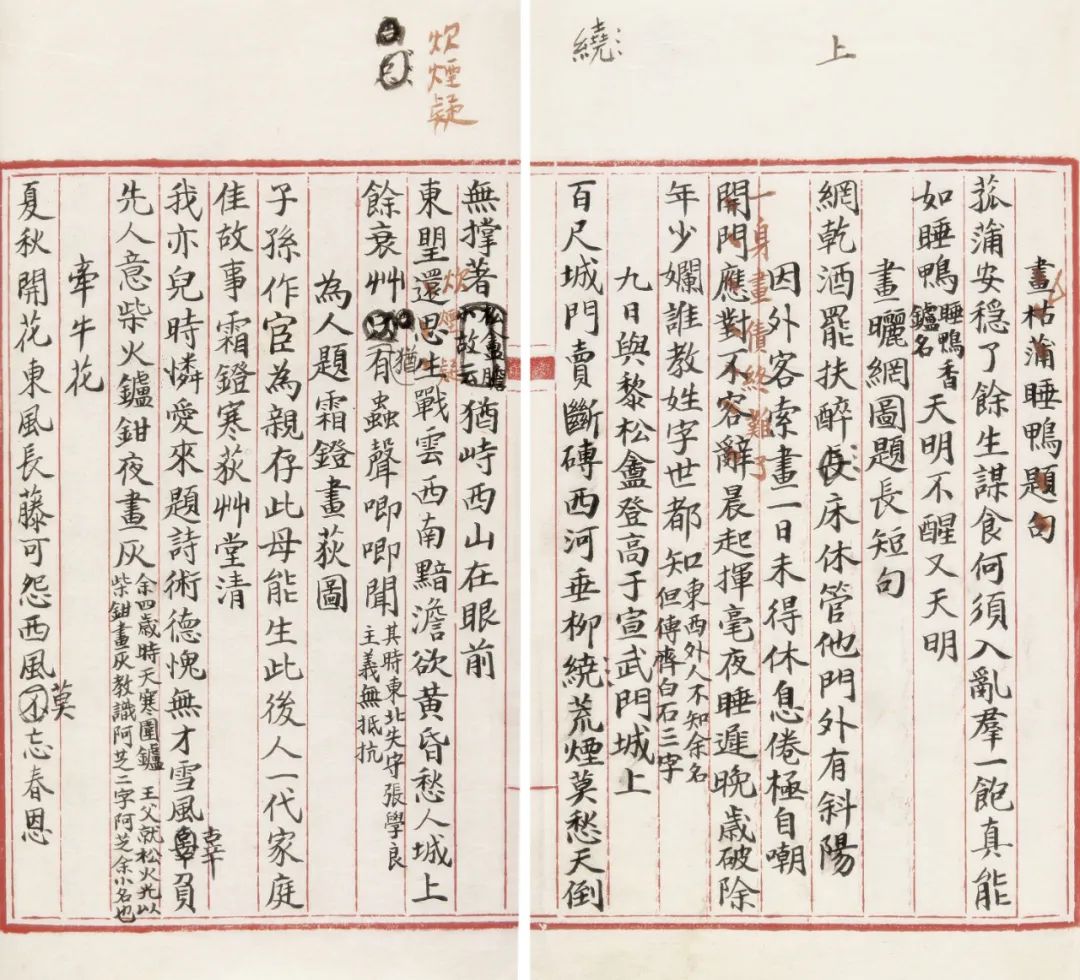 上
繞
畫菰蒲睡鴨題句
菰蒲安穩了餘生謀食何須入亂羣一飽真能
如睡鴨睡鴨香鑪名天明不醒又天明
畫曬網圖題長短句
網乾酒罷扶醉長床休管他門外有斜陽
因外客索畫一日未得休息倦極自嘲
一身畫債終難了
開門應對不容辭晨起揮毫夜睡遲晚歲破除
年少嬾誰教姓字世都知東西外人不知余名但傳齊白石三字
九日與黎松盦登高于宣武門城上
百尺城門賣斷磚西河垂柳繞荒煙莫愁天倒
炊煙疑
無撑著松盦膽小故云猶峙西山在眼前
東朢還思炊煙疑生戰雲西南黯澹欲黃昏愁人城上
餘衰艸猶有蟲聲唧唧聞其時東北失守張學良主義無抵抗
為人題霜鐙畫荻圖
子孫作宦為親存此母能生此後人一代家庭
佳故事霜鐙寒荻艸堂清
我亦兒時憐愛來題詩術德愧無才雪風辜負
先人意柴火鑪鉗夜畫灰余四歲時天寒圍鑪王父就松火光以柴鉗畫灰教識阿芝二字阿芝余小名也
牽牛花
夏秋開花東風長藤可怨西風莫忘春恩